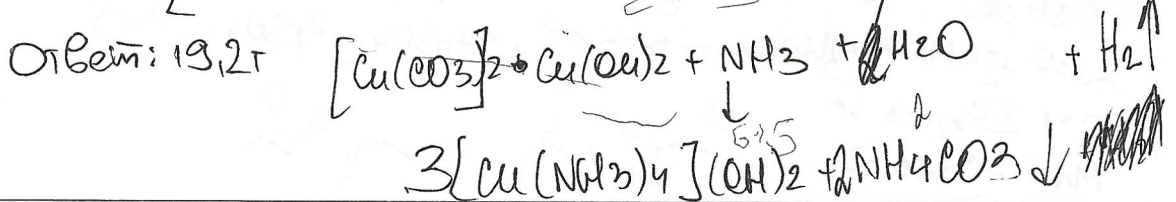 Ответ: 19,2г [Cu(CO3)]2 • Cu(OH)2 + NH3 + H2O + H2↑
↓
3[Cu(NH3)4](OH)2 + 2NH4CO3↓